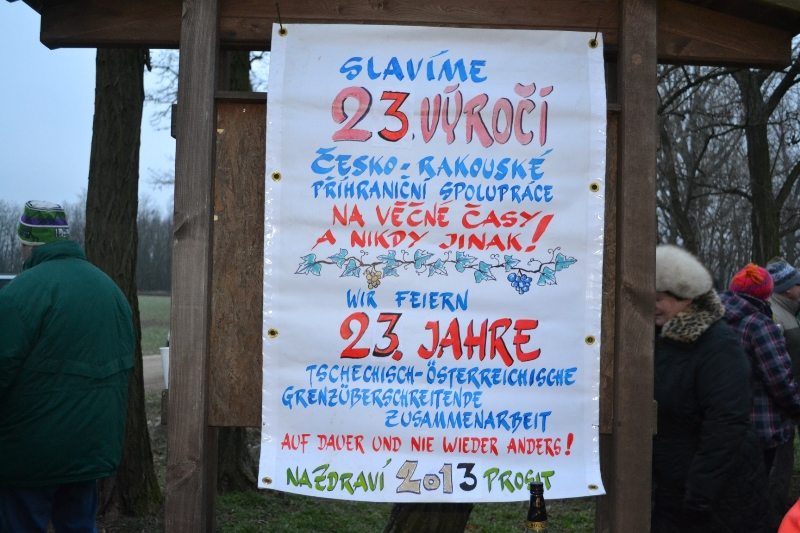 SLAVÍME
23. VÝROČÍ
ČESKO-RAKOUSKÉ
PŘIHRANIČNÍ SPOLUPRÁCE
NA VĚČNÉ ČASY
A NIKDY JINAK!
WIR FEIERN
23. JAHRE
TSCHECHISCH-ÖSTERREICHISCHE
GRENZÜBERSCHREITENDE
ZUSAMMENARBEIT
AUF DAUER UND NIE WIEDER ANDERS!
NAZDRAVÍ 2013 PROSIT